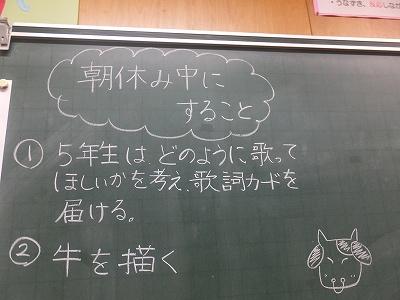 ・うなずき、反応しなが
朝休み中に
すること
① 5年生は、どのように歌って
ほしいかを考え、歌詞カードを
届ける。
② 牛を描く